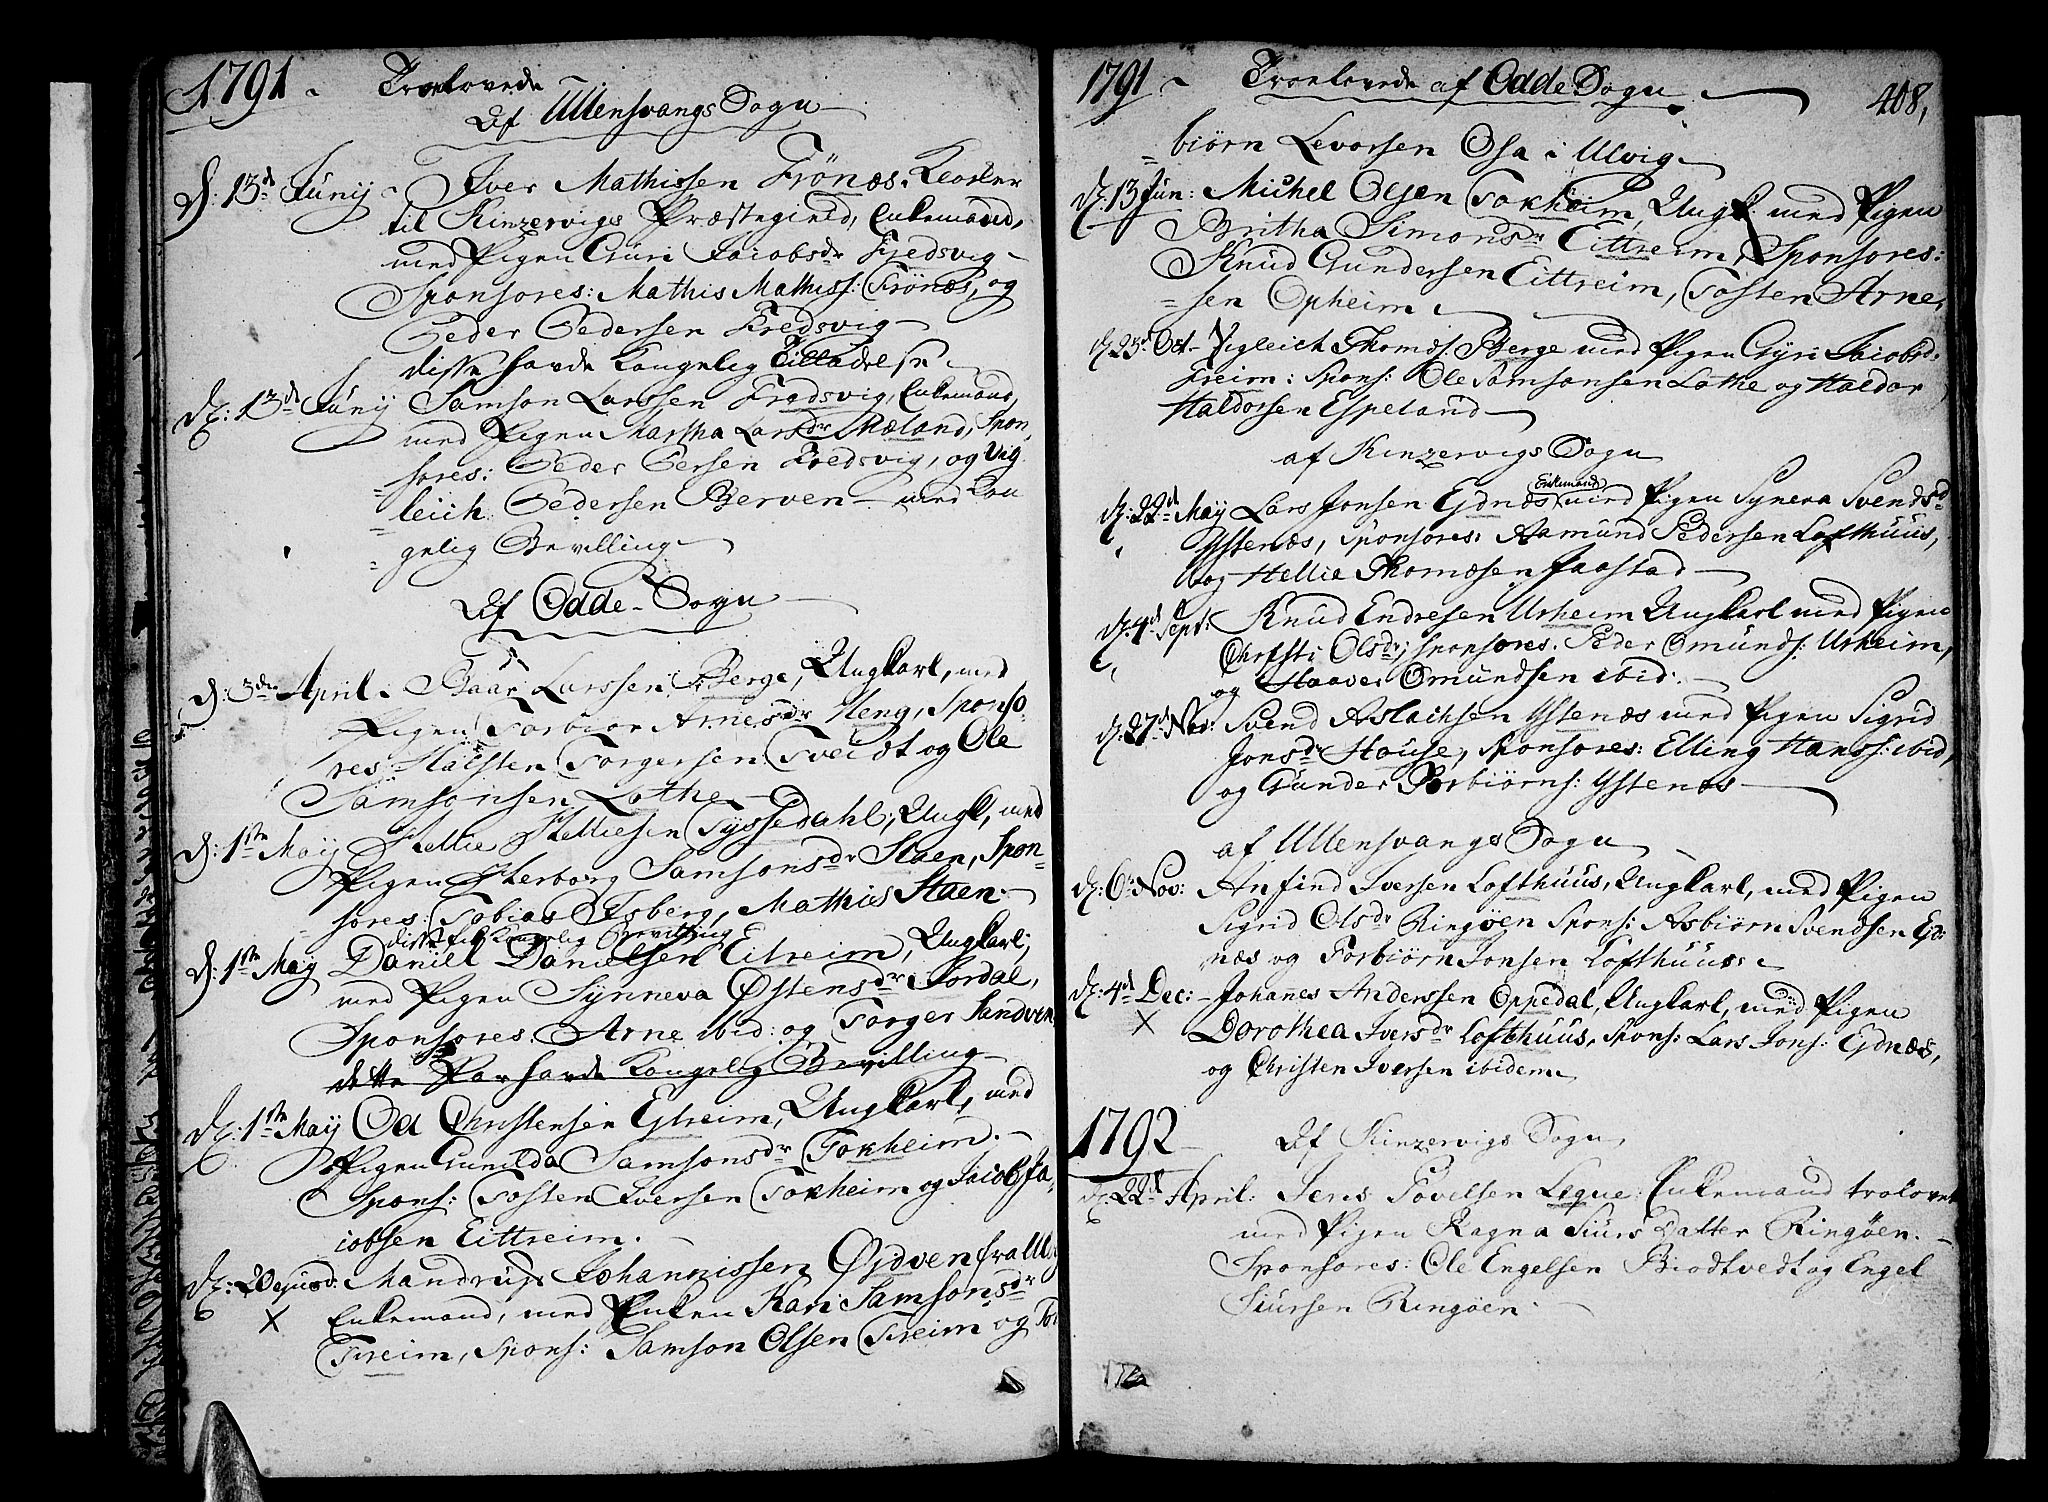 1791 Troelovede
Af Ullensvangs Sogn
d: 13d Junij Iver Mathissen Frönæs, Klocker
til Kinzervigs Præstegield, Enkemand,
med Pigen Guri Jacobsdr Fredsvig
Sponsores: Mathis Mathiss: Frönæs, og
Peder Pedersen Fredsvig
disse havde Kongelig Tilladelse
d: 13d Junij Samson Larssen Fredsvig, Enkemand,
med Pigen Martha Larsdr Mæland, Spon
sores: Peder Persen Fredsvig, og Vig
leich Pedersen Berven med Kon
gelig Bevilling
Af Odde Sogn
d: 3die April Baar Larssen Berge, Ungkarl, med
Pigen Torbior Arnesdr Heng, Sponso
res Halsten Torgersen Tveidt og Ole
Samsonsen Lothe
d: 1ste Maij Hellie Helliesen Tyssedahl, Ungk, med
Pigen Herborg Samsonsdr Staen, Spon
sores: Tobias Isberg, Mathies Staen
disse fik Kongelig Bevilling
d: 1ste Maij Daniel Danielsen Eitreim, Ungkarl,
med Pigen Synneva Østensdr Jordal,
Sponsores Arne ibid: og Torger Sandven
dette Par havde Kongelig Bevilling
d: 1ste Maij Od Christensen Egtreim, Ungkarl, med
Pigen Gunilda Samsonsdr Tokheim.
Spons: Tosten Iversen Tokheim og Jacob Ja
cobsen Eittreim.
Mandrup Johannissen Øjdven fra Ul
X Enkemand, med Enken Kari Samsonsdr
Freim, Spons: Samson Olsen Freim og Tor
1791 Troelovede af Odde Sogn 408,
biørn Levorsen Osa i Ulvig
d. 13 Jun: Michel Olsen Tokheim, Ungk. med Pigen
Britha Simonsdr Eittreim, Sponsores:
Knud Gundersen Eittreim, Tosten Arne
sen Opheim
d. 23d Oct Vigleich Thomæs. Berge med Pigen Gyri Jacobsd:
Freim: Spons: Ole Samsonsen Lothe og Haldor
Haldorsen Espeland
af Kinzervigs Sogn
d: 22d Maij Lars Jonsen Ejdnæs Enkemand med Pigen Syneva Svendsd
Ystenæs, Sponsores: Aamund Pedersen Lofthuus,
og Hellie Thomæsen Jaastad
d. 4d Sept: Knud Endresen Urheim Ungkarl med Pigen
Christi Olsdr, sponsores. Peder Omunds: Urheim,
og Haaver Omundsen ibid.
d. 27d Nov: Svend Aslachsen Ystenæs med Pigen Sigrid
Jonsdr House, Sponsores: Elling Hanss: ibid,
og Gunder Torbiørns: Ystenæs
af Ullensvangs Sogn
d: 6t Nov: Anfind Iversen Lofthuus, Ungkarl, med Pigen
Sigrid Olsdr Ringøen Spons: Asbiørn Svendsen Ejd
næs og Torbiørn Jonsen Lofthuus:
d: 4d Dec: Johannes Anderssen Oppedal, Ungkarl, med Pigen
X Dorothea Iversdr Lofthuus, Spons: Lars Jons: Ejdnæs,
og Christen Iversen ibidem
1792 Af Kinzervigs Sogn
d. 22d April: Jens Povelsen Legue: Enkemand trolovet
med Pigen Ragna Siurs Datter Ringøen.
Sponsores: Ole Engelsen Biodtvedt og Engel
Siursen Ringøen